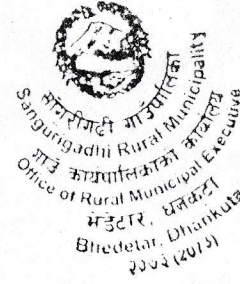 साँगुरीगढी गाउँपालिका
Sangurigadhi Rural Municipality
गाउँ कार्यपालिकाको कार्यालय
Office of Rural Municipal Executive
भेडेटार, धनकुटा
Bhedetar, Dhankuta
२०७३ (2073)